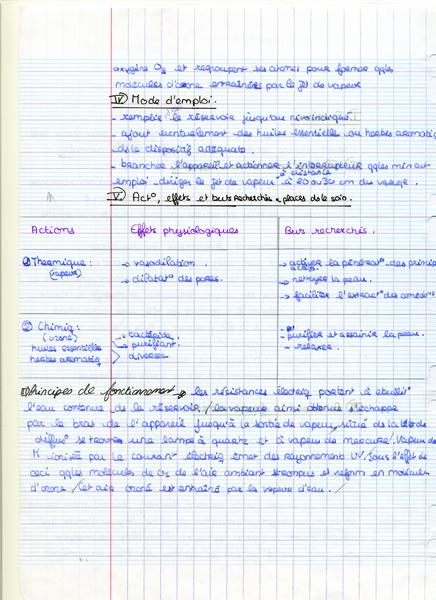 oxygène O2 et regroupent ses atomes pour former qqles
molécules d'ozone entraînées par le jet de vapeur
IV) Mode d'emploi.
- remplir le réservoir jusqu'au niv indiqué
- ajout éventuellement des huiles essentielles ou herbes aromatiq
ds le dispositif adéquate.
- brancher l'appareil et actionner l'interrupteur qqles min avt
emploi - diriger le jet de vapeur à distance à 20 ou 30 cm du visage.
V) Act°, effets et buts recherchés + places ds le soin.
Actions Effets physiologiques Buts recherchés.
① Thermique : - vasodilation. - activer la pénétrat° des principes
(vapeur) - dilatat° des pores. actifs.
- nettoyer la peau.
- faciliter l'extract° des comédons
② Chimiq : - bactéricide - purifier et assainir la peau.
(ozone) - purifiant - relaxer.
huiles essentielles diverses
herbes aromatiq
III) Principes de fonctionnement → les résistances électriq portent à ébullit°
l'eau contenue ds le réservoir / la vapeur ainsi obtenue s'échappe
par le bras de l'appareil jusqu'à la sortie de vapeur, situé ds la tête de
diffus° se trouve une lampe à quartz et à vapeur de mercure / Vapeur de
M ionisée par le courant électriq émet des rayonnements UV / sous l'effet de
ceci qqles molécules de O2 de l'air ambiant se rompus et reform en molécules
d'ozone / cet air ozoné est entraîné par la vapeur d'eau. /